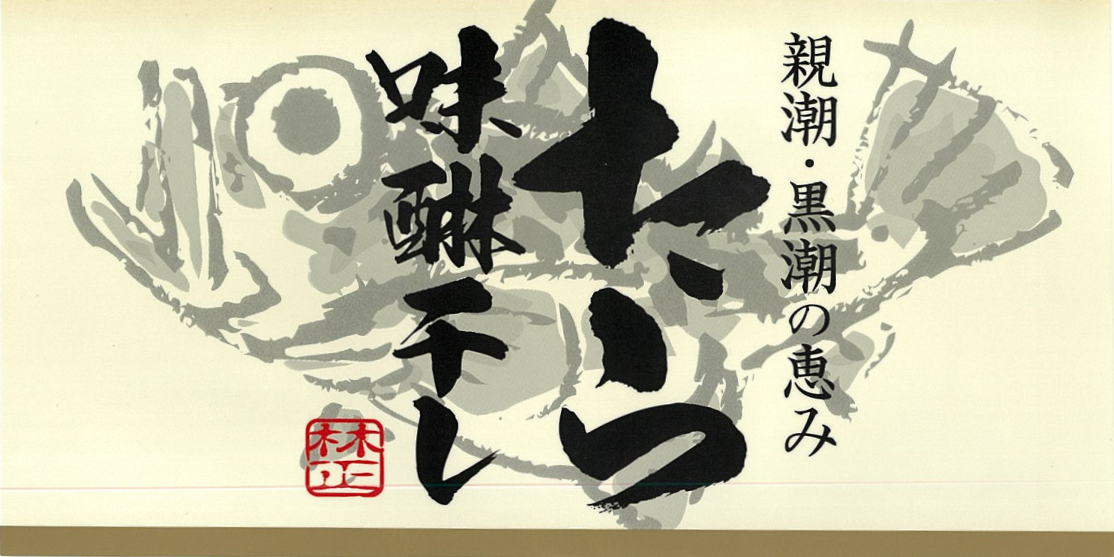 親潮・黒潮の恵み
たらつ
味醂干し
林